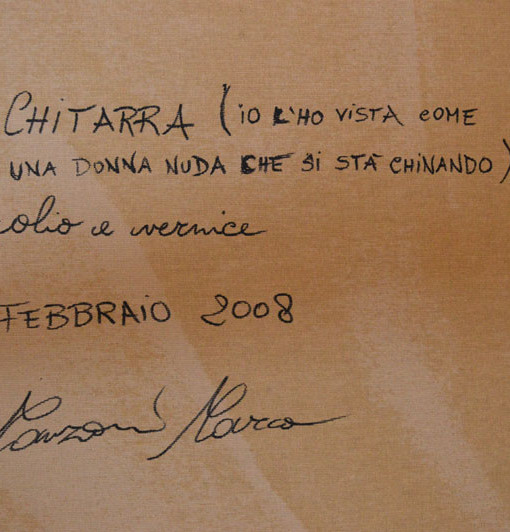 CHITARRA (IO L'HO VISTA COME
UNA DONNA NUDA CHE SI STA CHINANDO)
olio e vernice
FEBBRAIO 2008
Manzoni Marco